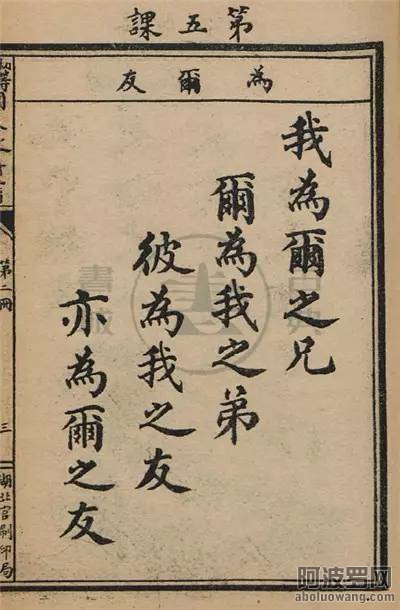 第五課
為爾友
我為爾之兄
爾為我之弟
彼為我之友
亦為爾之友
第二冊
三
湖北官刷印局
阿波罗网
aboluowang.com